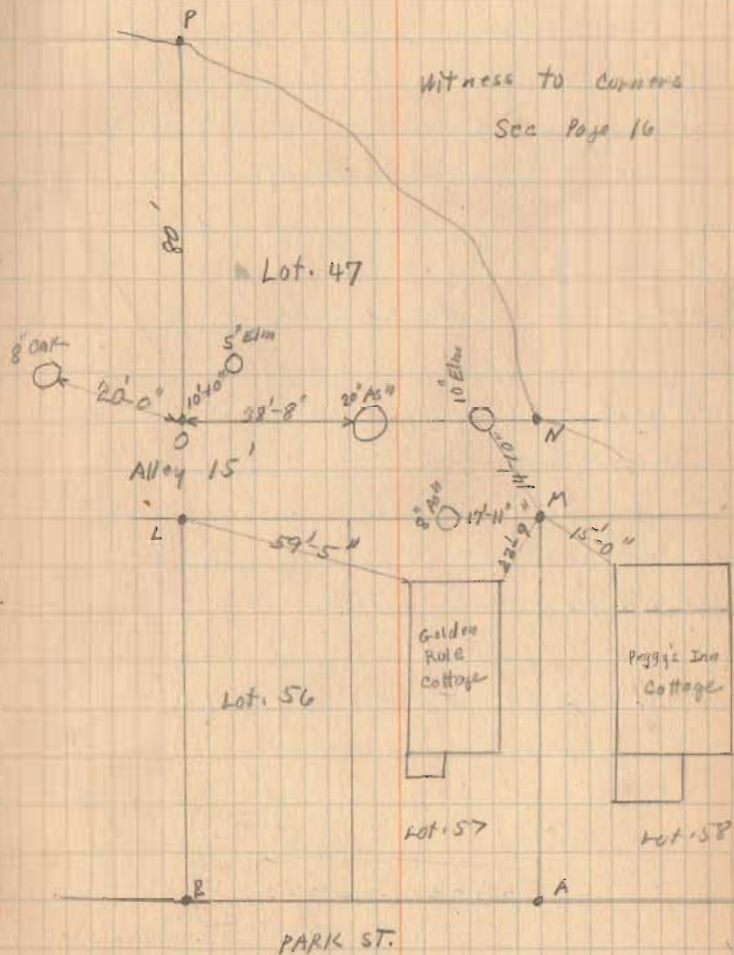 P
Witness to Corners
See Page 16
Lot. 47
8" Oak
5" Elm
20'-0"
10'-10"
38'-8"
20" Ash
10" Elm
O
N
Alley 15'
L
8" Ash
17'-11"
M
59'-5"
22'-9"
15'-0"
Golden
Rule
Cottage
Peggy's Inn
Cottage
Lot. 56
Lot. 57
Lot. 58
B
A
PARK ST.